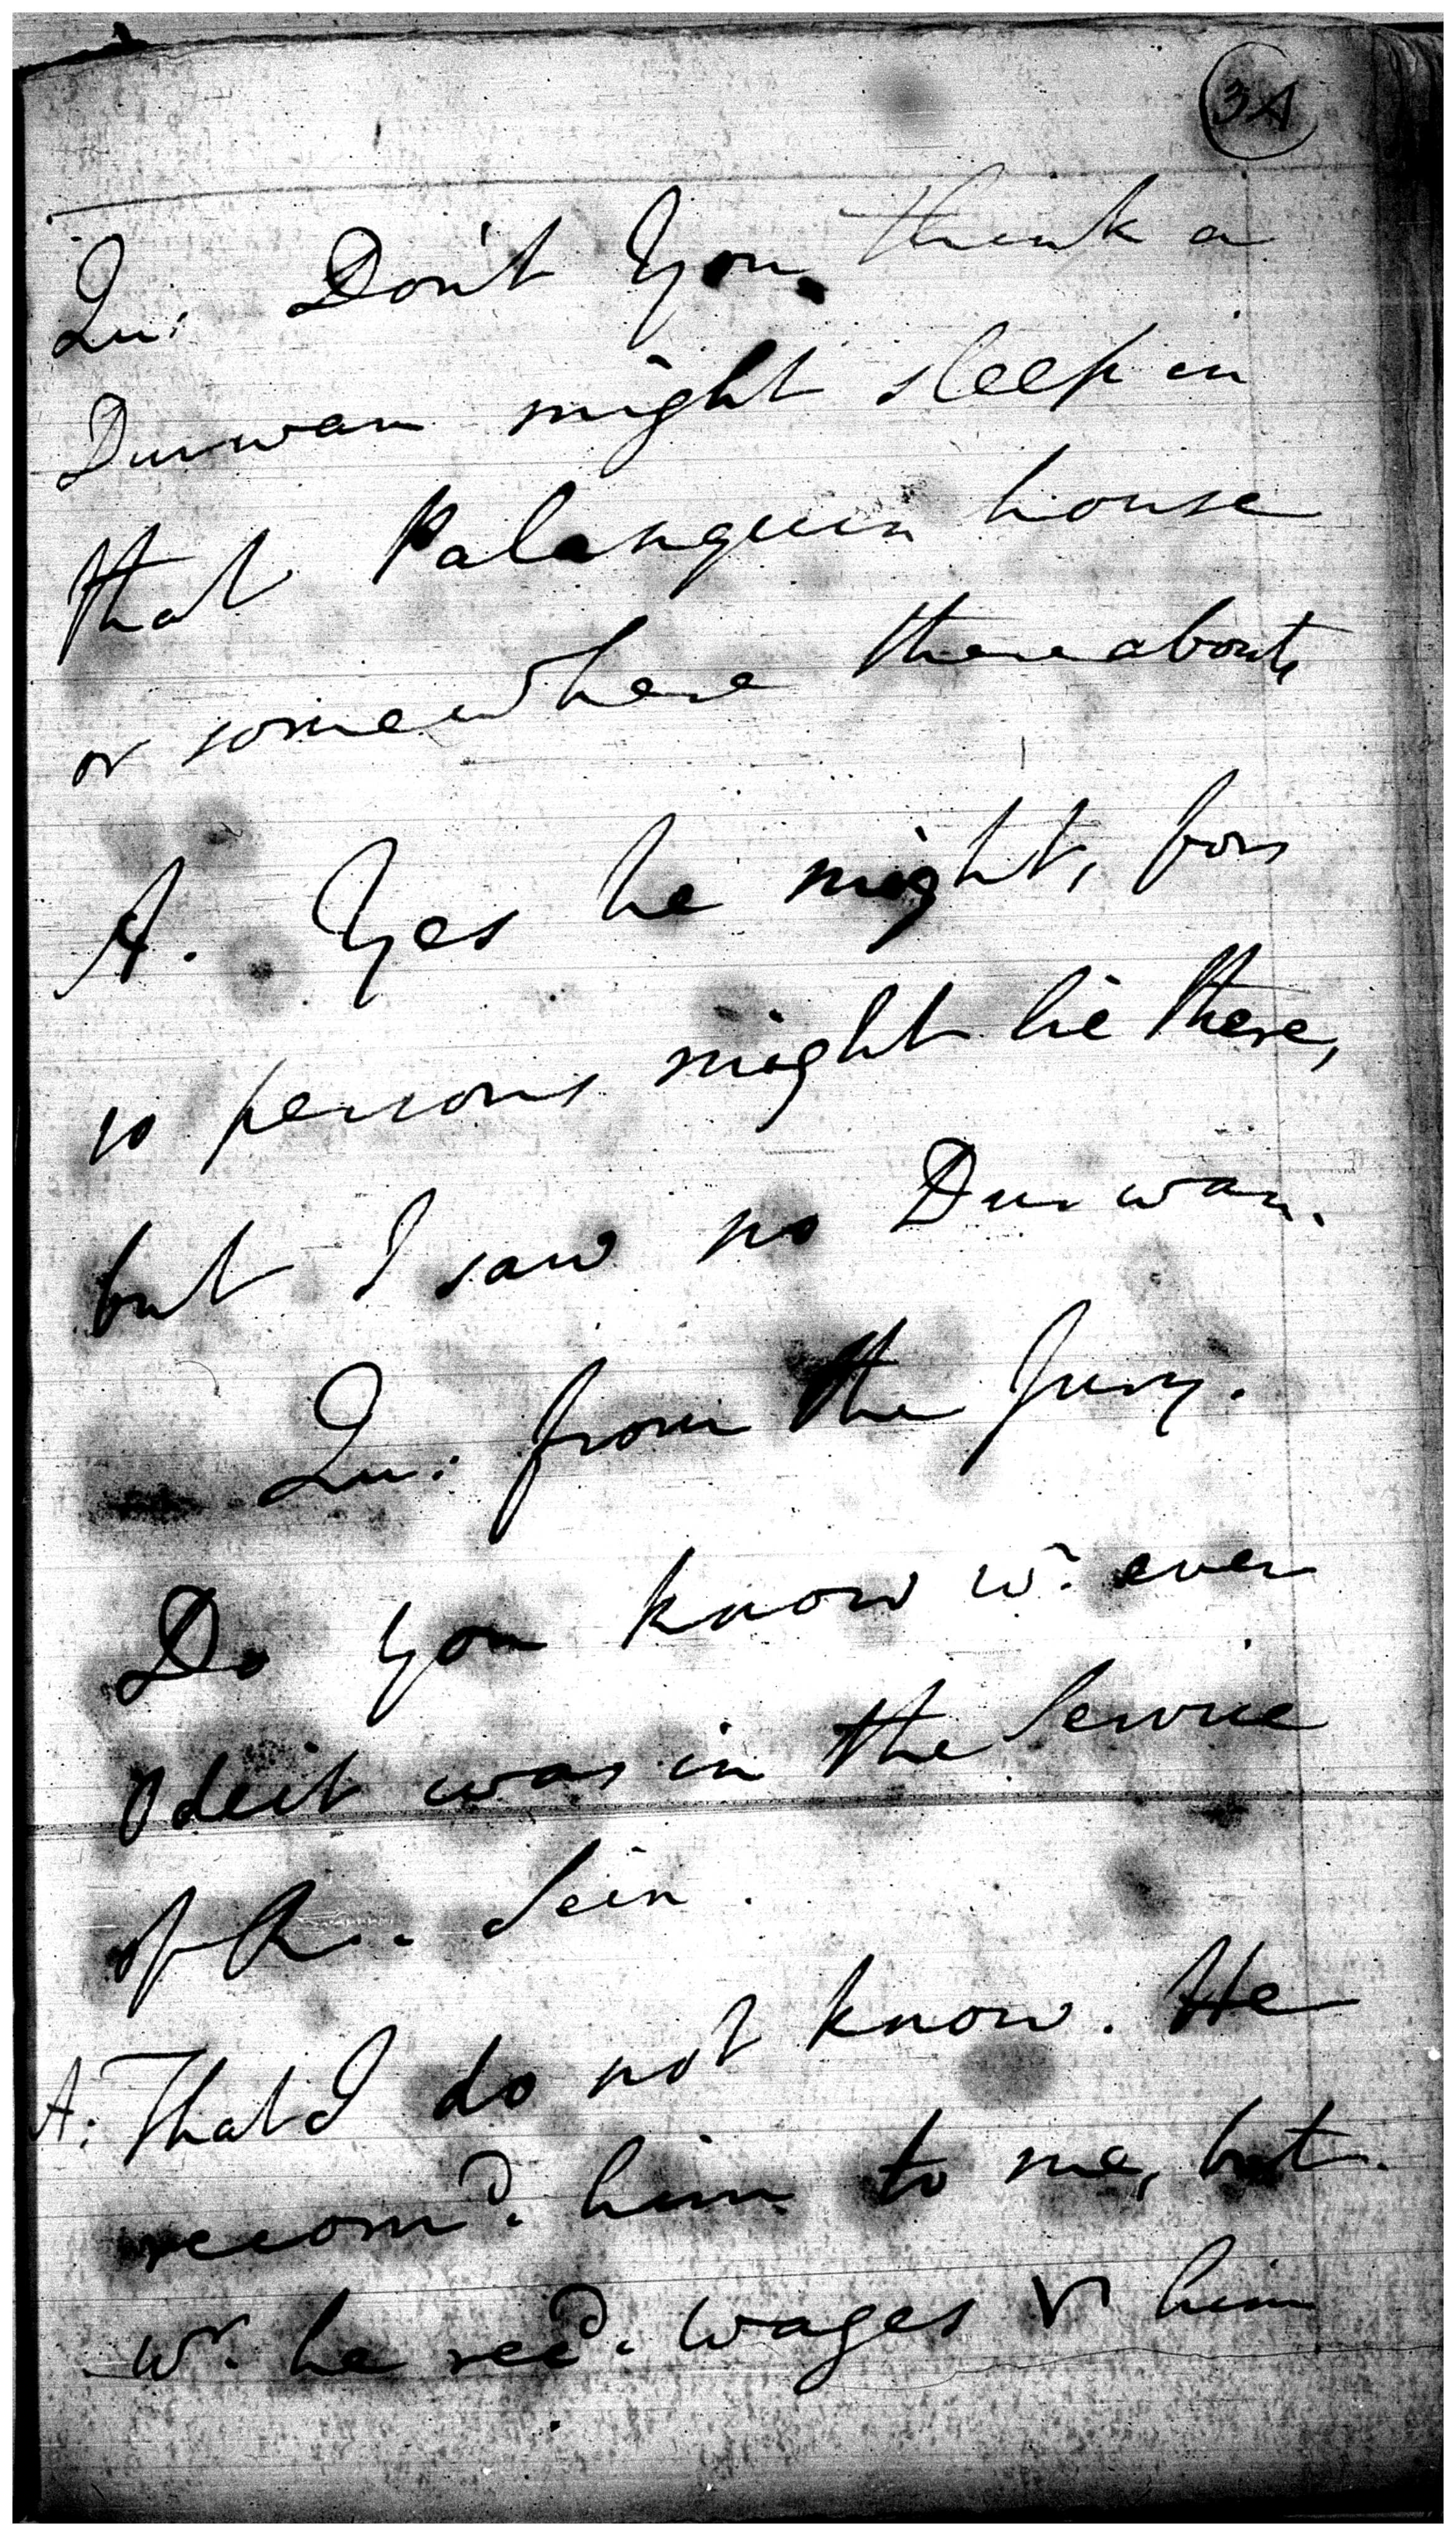 3A
Qu: Don't You think a
Durwan might sleep in
that Palanquin house
or somewhere thereabouts
A. Yes he might, for
10 persons might lie there,
but I saw no Durwan.
Qu: from the Jury.
Do you know wr. ever
Odeit was in the Service
of R.. Sein.
A: That I do not know. He
recomd. him to me, but
wr. he recd. wages him